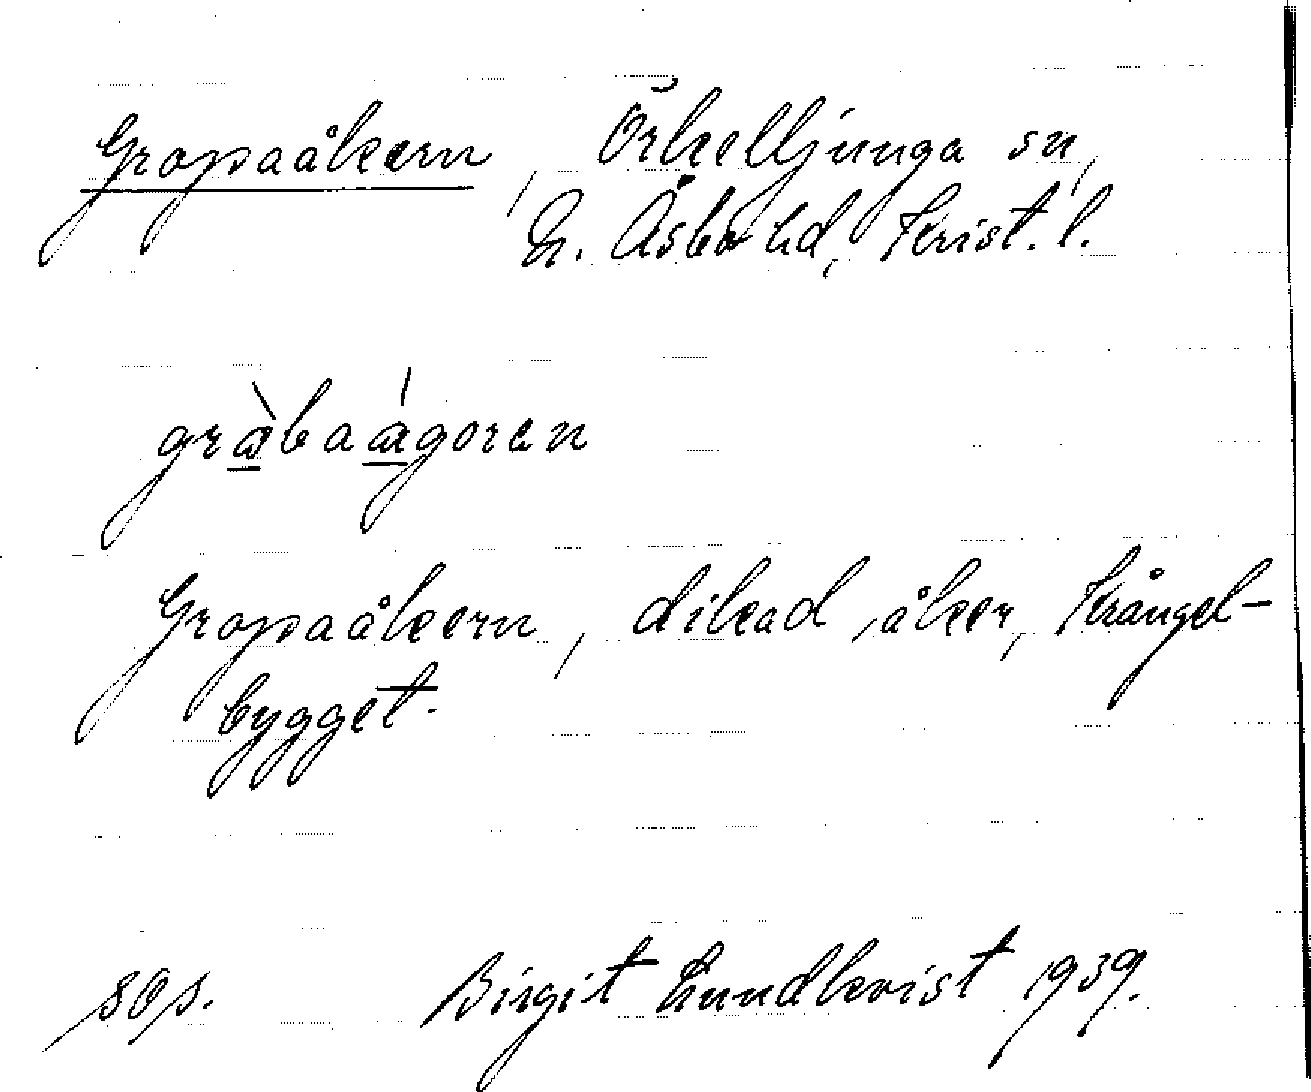 Gropaåkern, Örkelljunga sn,
N. Åsbo hd, Krist. l.
gràbaágoren
Gropaåkern, dikad åker, Krångel-
bygget.
sop. Birgit Lundkvist 1939.